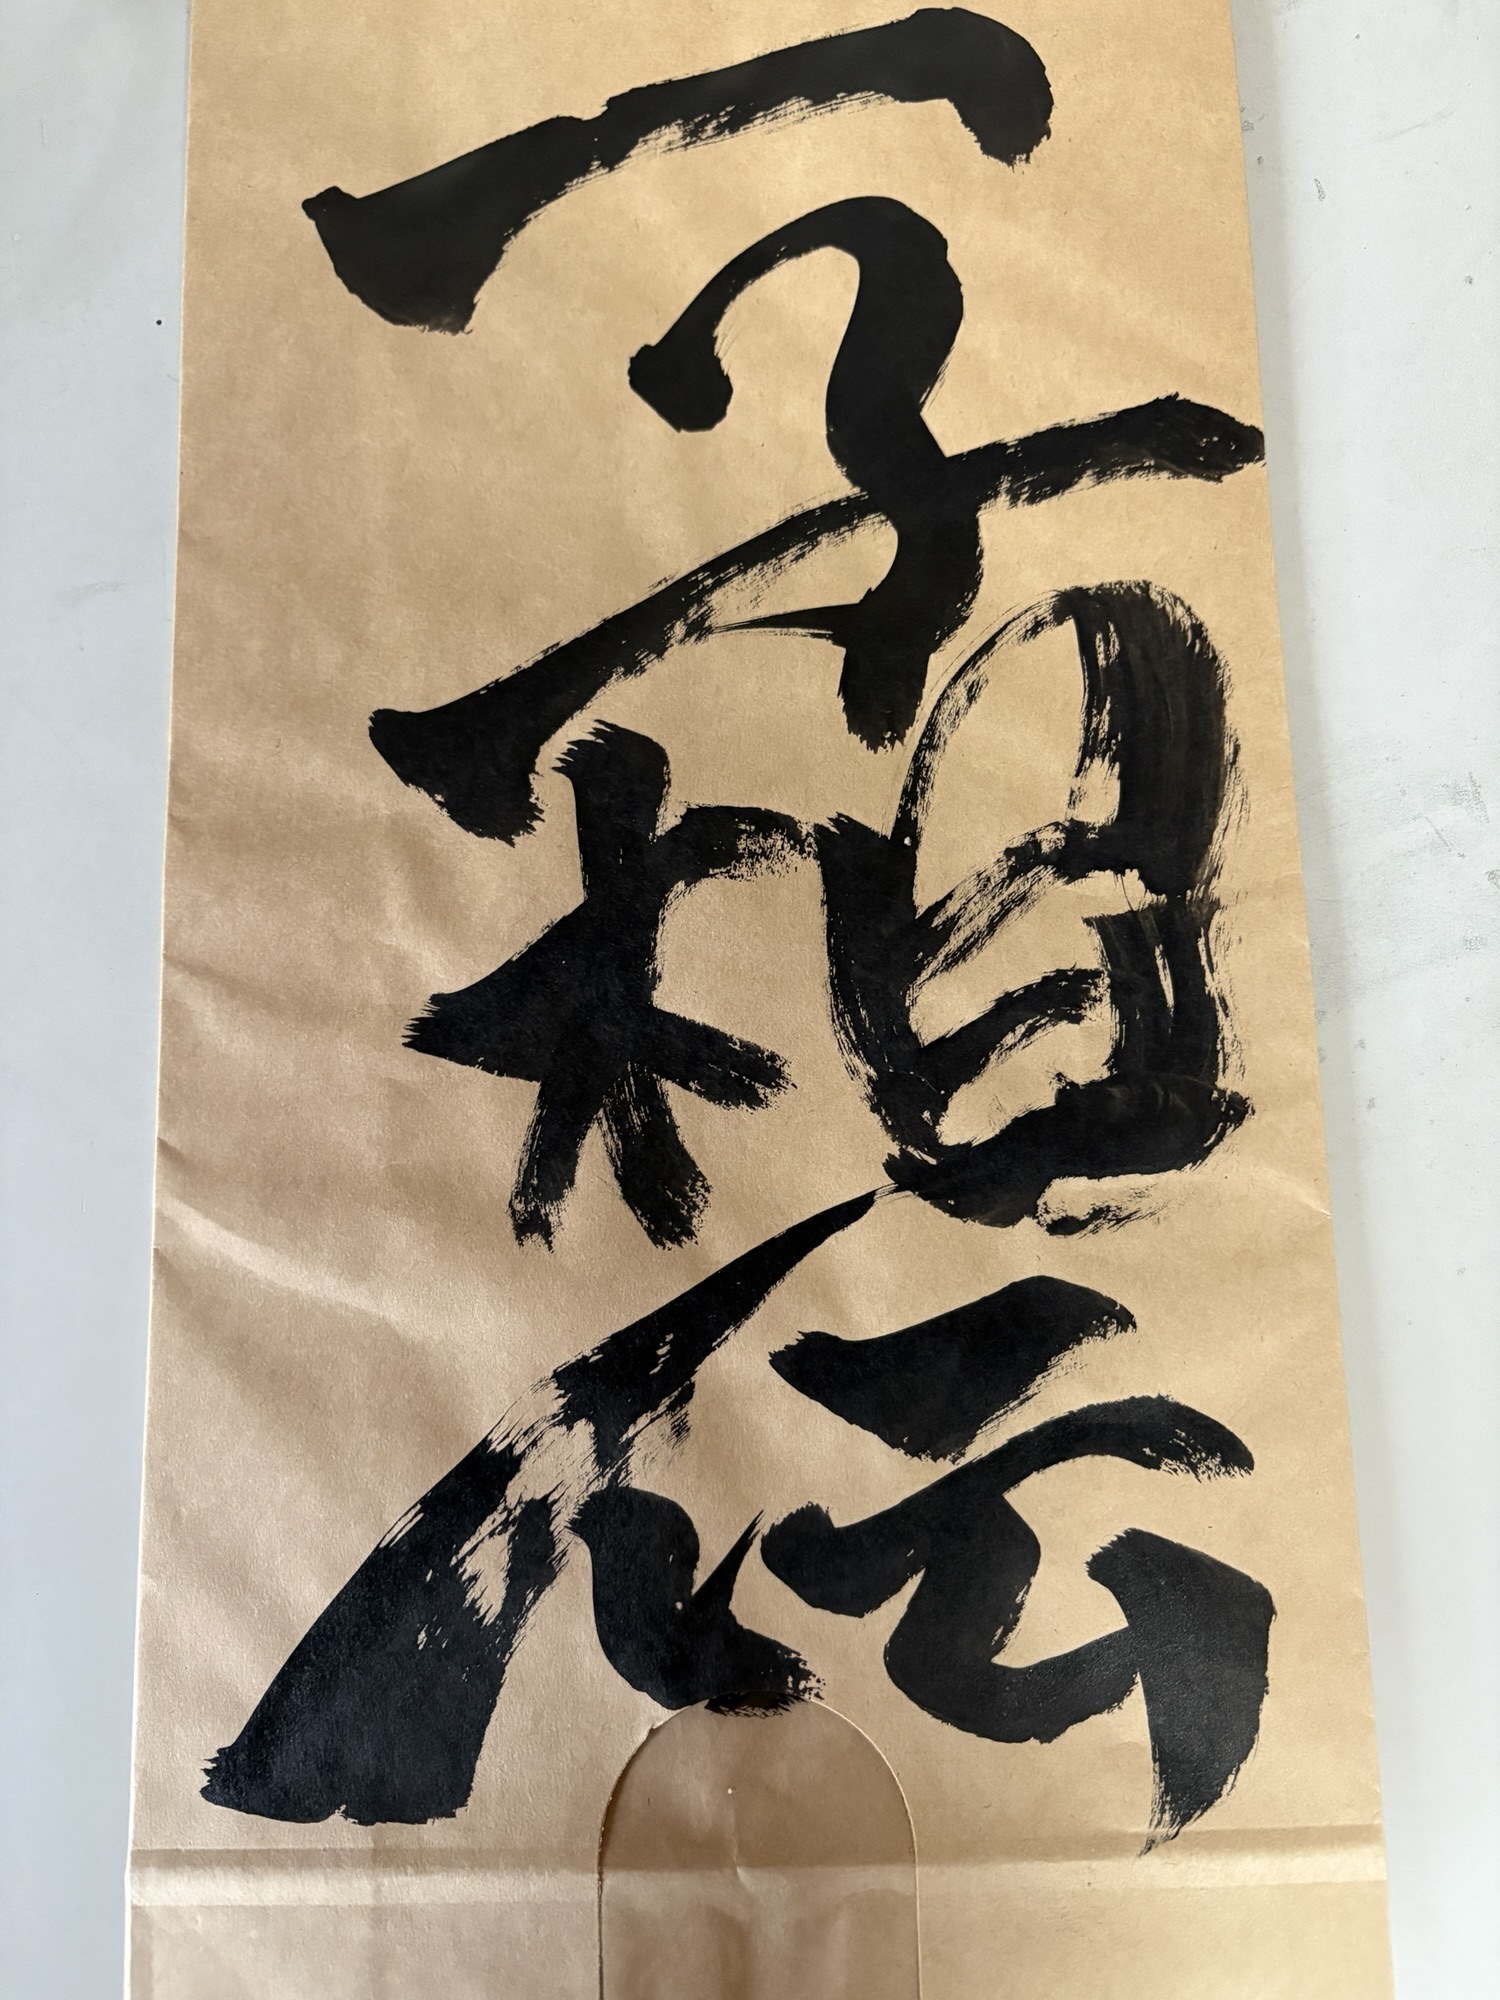 一子相伝